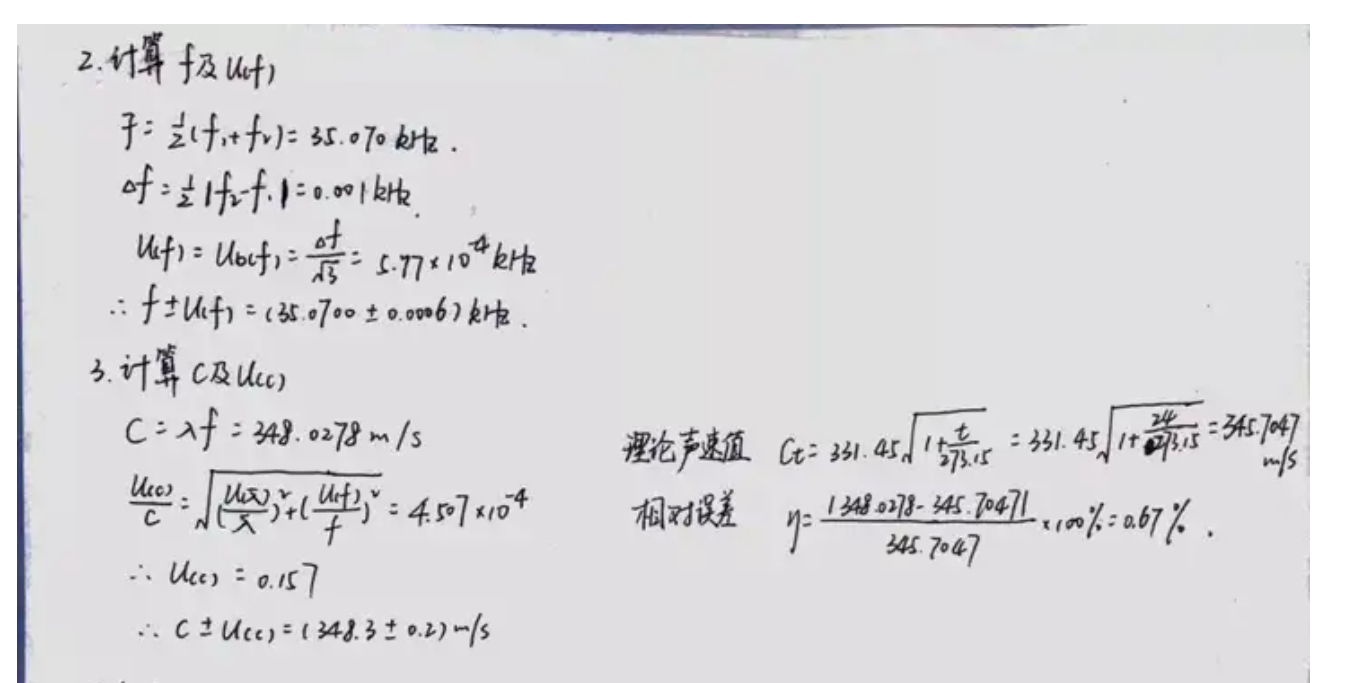 2. 计算 f及U(f)
f̄ = ½(f₁+f₂) = 35.070 kHz.
Δf = ½|f₂-f₁| = 0.001 kHz.
U(f) = Ub(f) = Δf/√3 = 5.77×10⁻⁴ kHz
∴ f±U(f) = (35.0700 ± 0.0006) kHz.
3. 计算 C及U(c)
C = λf = 348.0278 m/s
U(c)/C = √((U(λ̄)/λ̄)²+(U(f)/f)²) = 4.507×10⁻⁴
∴ U(c) = 0.157
∴ C ± U(c) = (348.3 ± 0.2) m/s
理论声速值 Ct = 331.45√(1+t/273.15) = 331.45√(1+24/273.15) = 345.7047 m/s
相对误差 η = |348.0278-345.7047|/345.7047 ×100% = 0.67%.